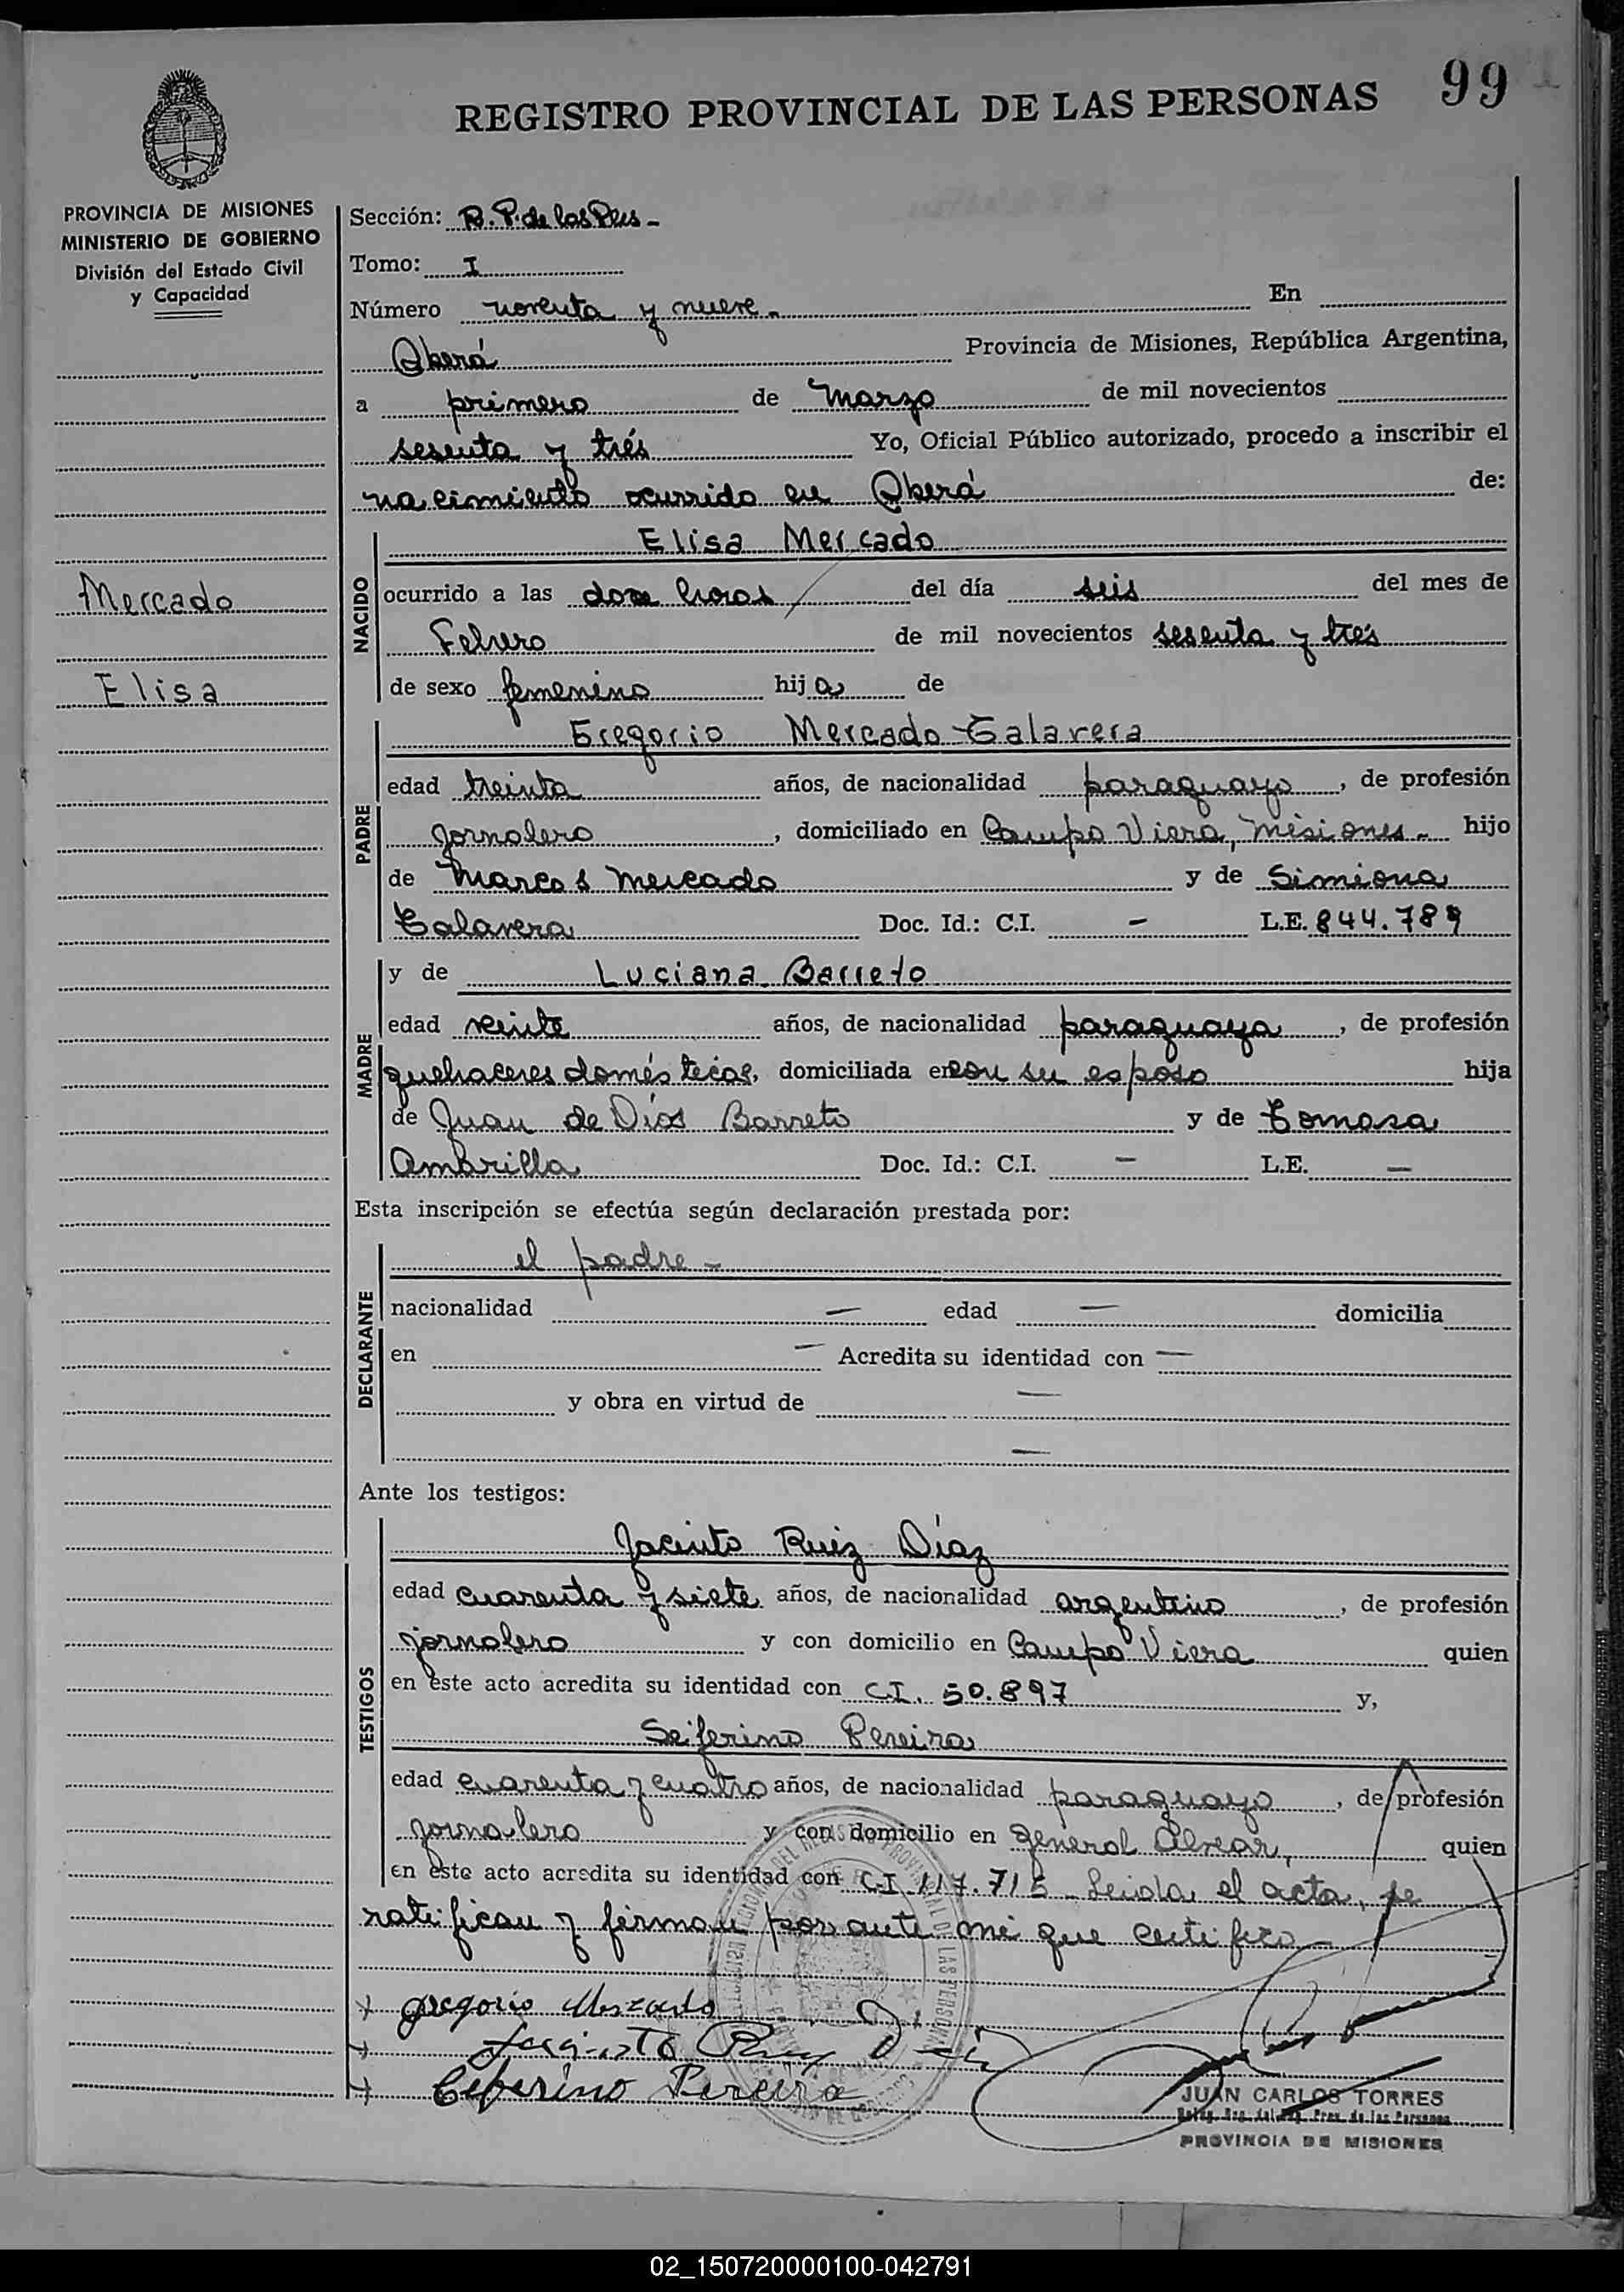 99
REGISTRO PROVINCIAL DE LAS PERSONAS
PROVINCIA DE MISIONES
MINISTERIO DE GOBIERNO
División del Estado Civil
y Capacidad
Mercado
Elisa
Sección: R. P. de las Pers -
Tomo: I
Número noventa y nueve. En
Oberá Provincia de Misiones, República Argentina,
a primero de Marzo de mil novecientos
sesenta y trés Yo, Oficial Público autorizado, procedo a inscribir el
nacimiento ocurrido en Oberá de:
NACIDO
Elisa Mercado
ocurrido a las doce horas del día seis del mes de
Febrero de mil novecientos sesenta y trés
de sexo femenino hija de
PADRE
Gregorio Mercado Talavera
edad treinta años, de nacionalidad paraguayo, de profesión
jornalero, domiciliado en Campo Viera, Misiones - hijo
de Marcos Mercado y de Simiona
Talavera Doc. Id.: C.I. - L.E. 844.789
MADRE
y de Luciana Barreto
edad veinte años, de nacionalidad paraguaya, de profesión
quehaceres domésticos, domiciliada en con su esposo hija
de Juan de Dios Barreto y de Tomasa
Ambrilla Doc. Id.: C.I. - L.E. -
Esta inscripción se efectúa según declaración prestada por:
DECLARANTE
el padre -
nacionalidad - edad - domicilia
en - Acredita su identidad con -
y obra en virtud de -
-
Ante los testigos:
TESTIGOS
Jacinto Ruiz Díaz
edad cuarenta y siete años, de nacionalidad argentino, de profesión
jornalero y con domicilio en Campo Viera quien
en este acto acredita su identidad con C.I. 50.897 y,
Seiferino Pereira
edad cuarenta y cuatro años, de nacionalidad paraguayo, de profesión
jornalero y con domicilio en General Alvear, quien
en este acto acredita su identidad con C.I 117.715 - Leida el acta, se
ratifican y firman por ante mi que certifico -
Gregorio Mercado
Jacinto Ruiz Diaz
Ceferino Pereira
JUAN CARLOS TORRES
PROVINCIA DE MISIONES
02_150720000100-042791